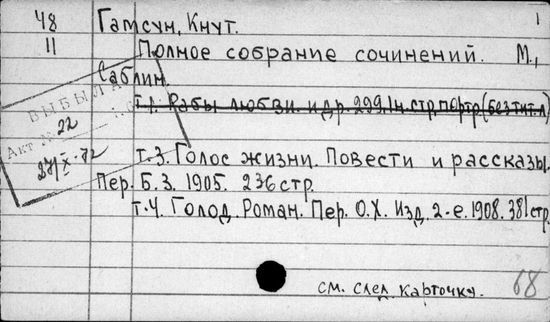 48 Гамсун, Кнут. 1
11 Полное собрание сочинений. М.,
Саблин.
т.1. Рабы любви. и др. 299, 1н. стр. портр. (без тит. л)
ВЫБЫЛА
Акт № 22
27/X-72
т.3. Голос жизни. Повести и рассказы.
Пер. Б. З. 1905. 236 стр.
т.4. Голод. Роман. Пер. О.Х. Изд. 2-е. 1908. 381 стр.
см. след. карточку. 68